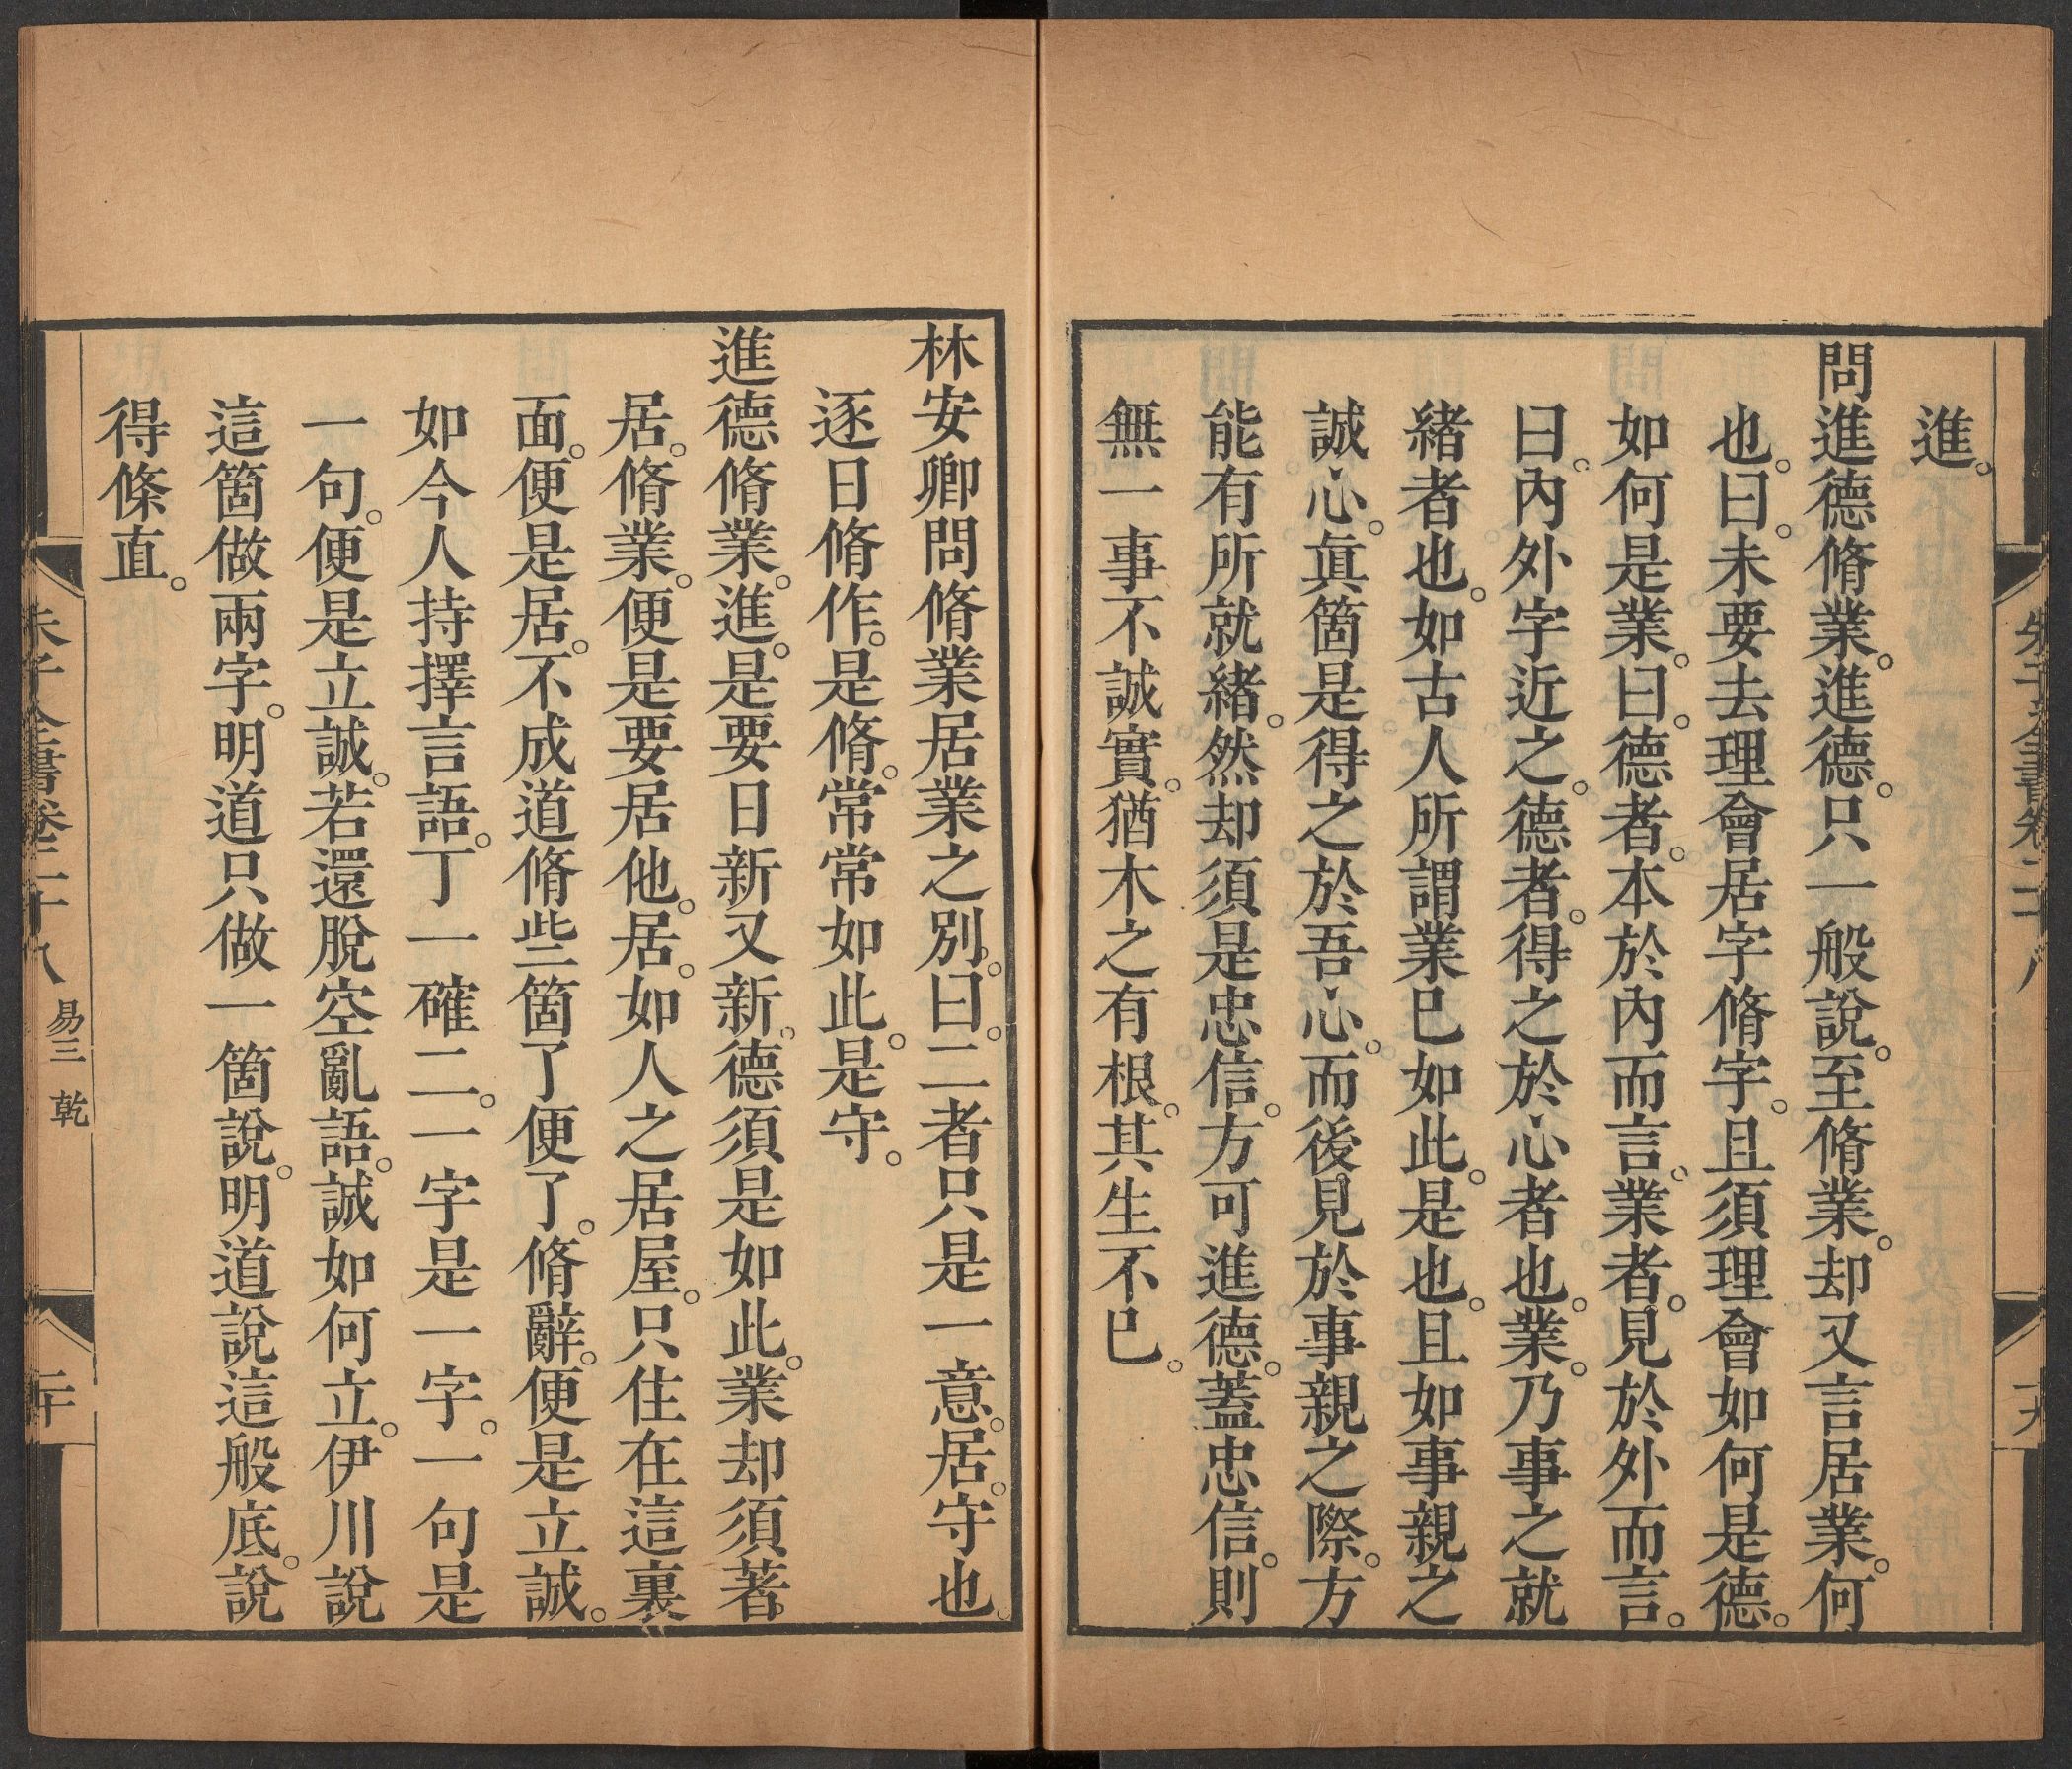 進。
問進德脩業。進德。只一般說。至脩業。却又言居業。何
也。曰。未要去理會居字脩字。且須理會如何是德。
如何是業。曰。德者。本於內而言。業者。見於外而言。
曰。內外字近之。德者。得之於心者也。業。乃事之就
緒者也。如古人所謂業已如此。是也。且如事親之
誠心。眞箇是得之於吾心。而後見於事親之際。方
能有所就緒。然却須是忠信。方可進德。蓋忠信。則
無一事不誠實。猶木之有根。其生不已。
林安卿問脩業居業之別。曰。二者只是一意。居。守也。
逐日脩作。是脩。常常如此。是守。
進德脩業。進。是要日新又新。德須是如此。業却須著
居。脩業。便是要居他。居。如人之居屋。只住在這裏
面。便是居。不成道脩些箇了便了。脩辭。便是立誠。
如今人持擇言語。丁一確二。一字是一字。一句是
一句。便是立誠。若還脫空亂語。誠如何立。伊川說
這箇做兩字。明道只做一箇說。明道說這般底。說
得條直。
朱子全書卷二十八 易三 乾
二十